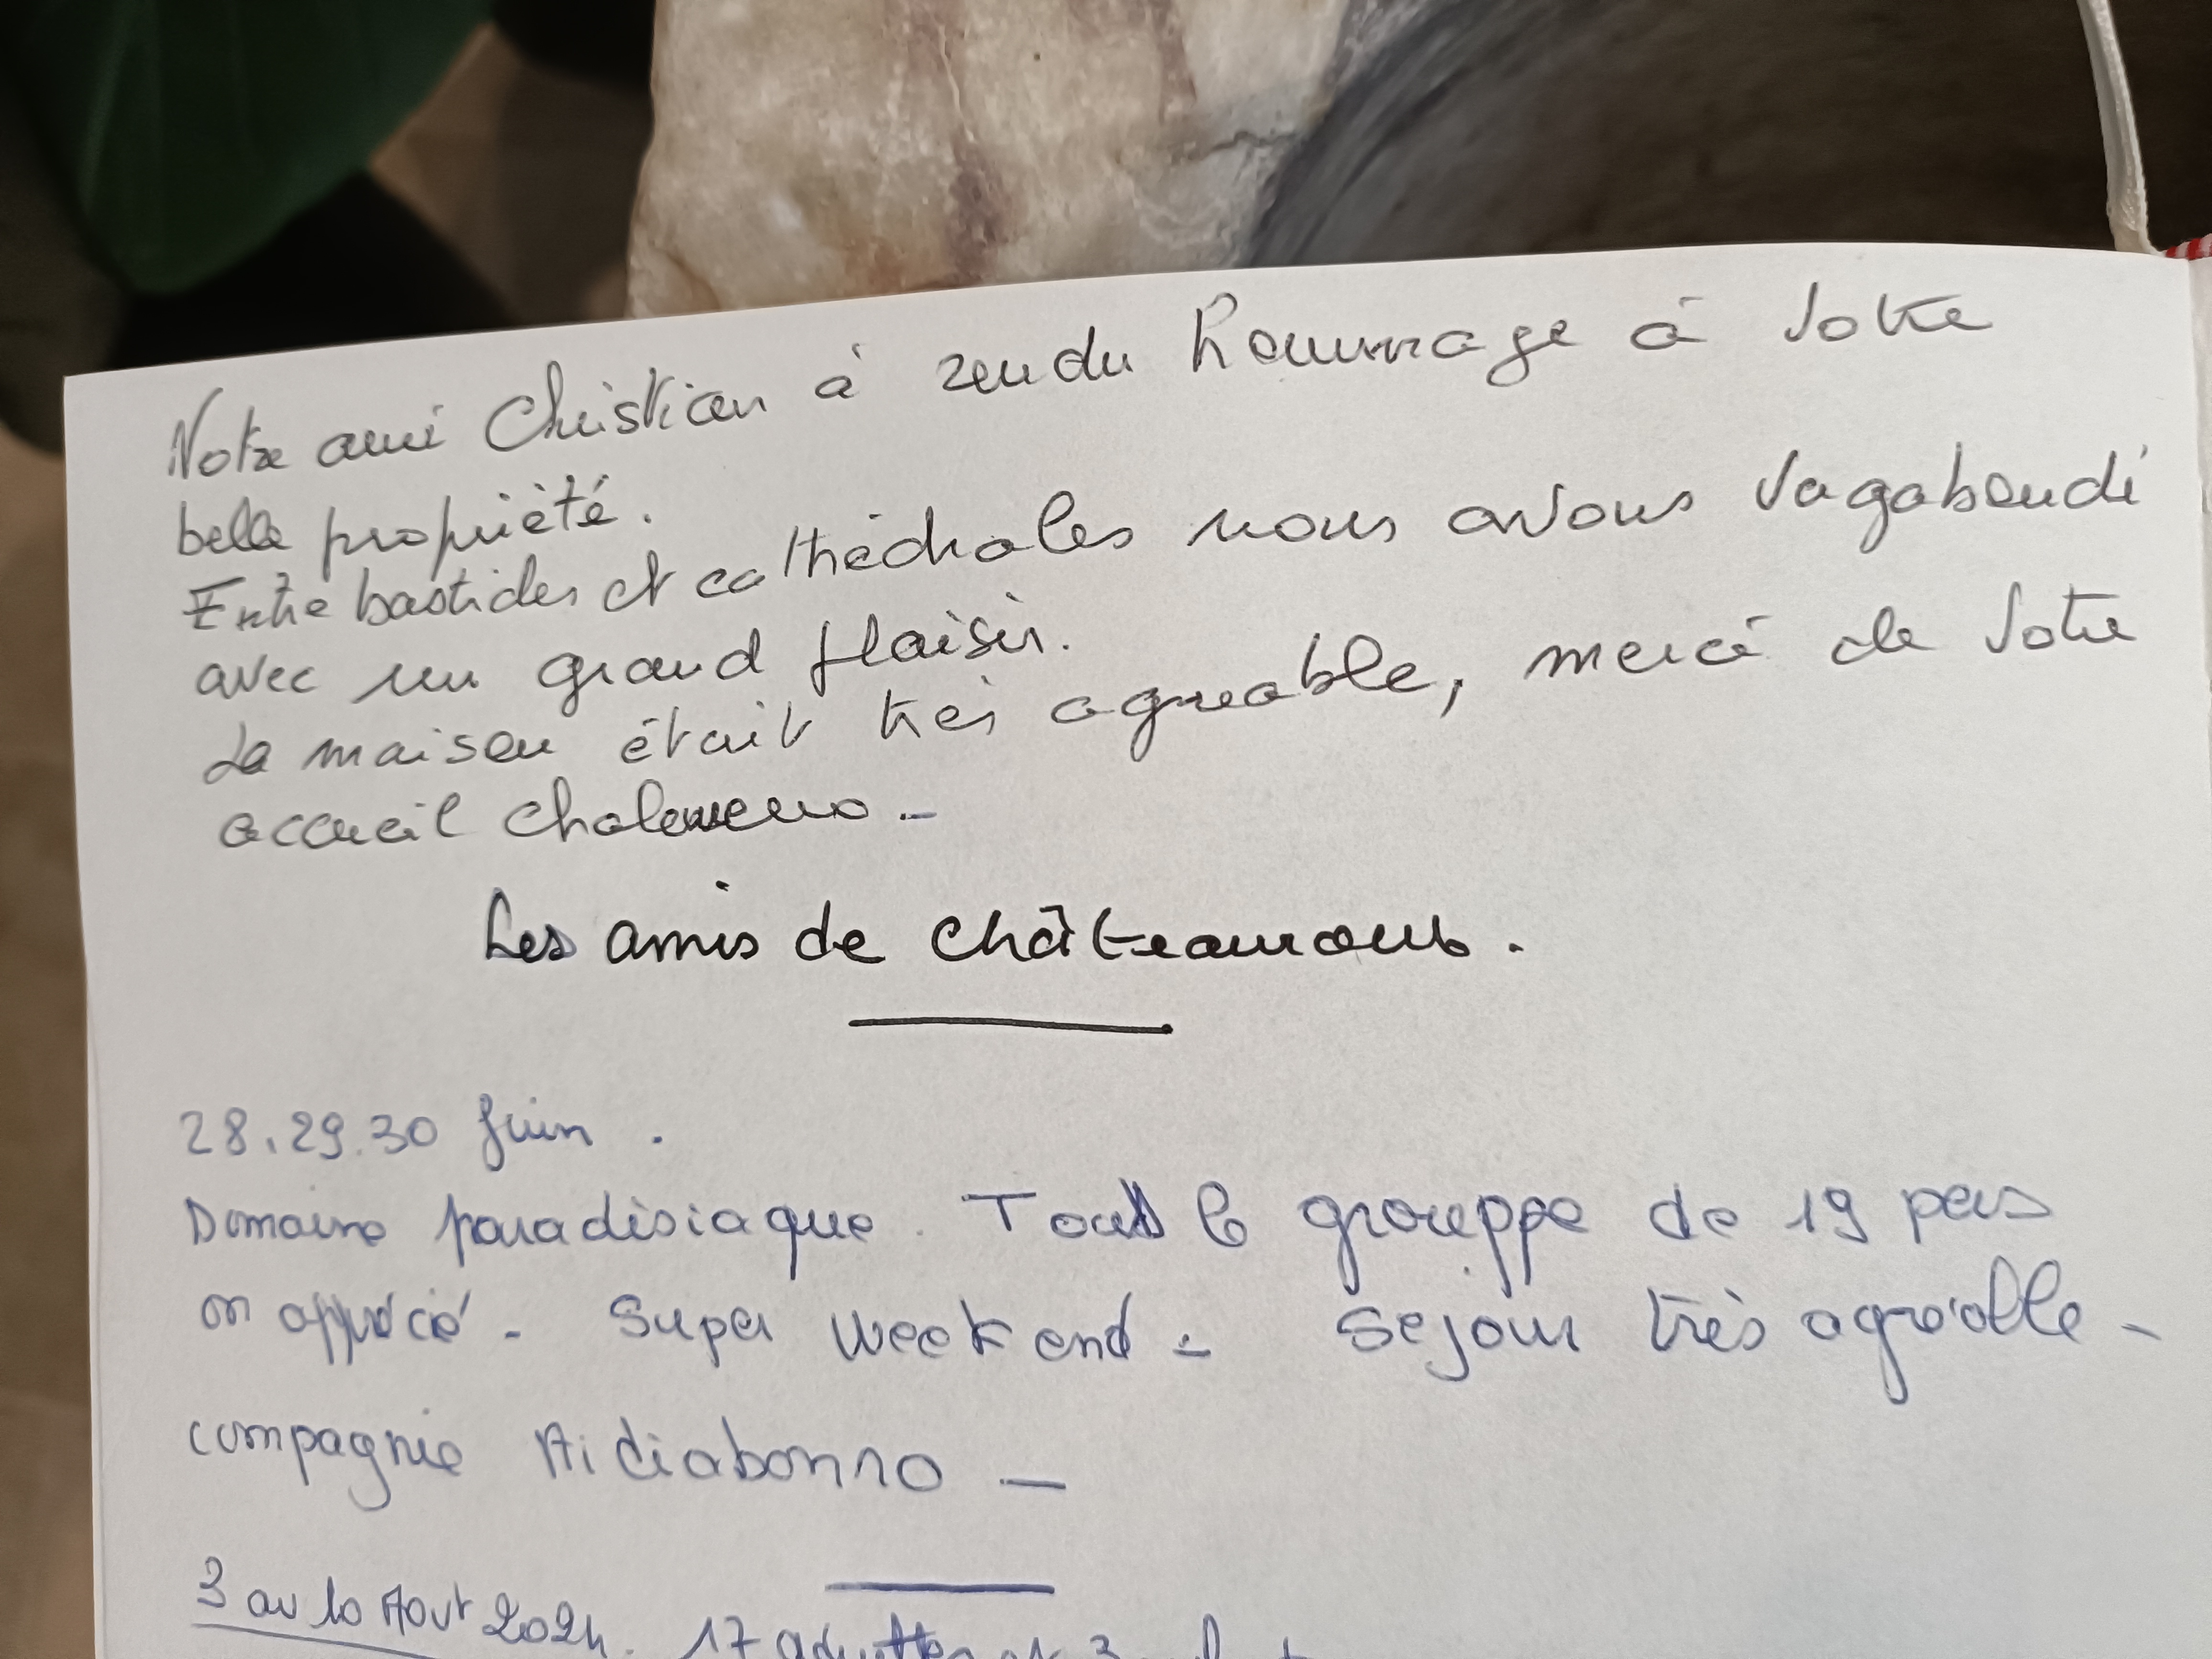 Notre ami Christian à rendu hommage à votre
belle propriété.
Entre bastides et cathédrales nous avons vagabondé
avec un grand plaisir.
La maison était très agréable, merci de votre
accueil chaleureux -
Les amis de Châteauroux.
28.29.30 Juin.
Domaine paradisiaque. Tout le grouppe de 19 pers
on apprécié. Super week end - Sejour très agréable -
compagnie Aidiabonno -
3 au 10 Aout 2024. 17 adultes et 3